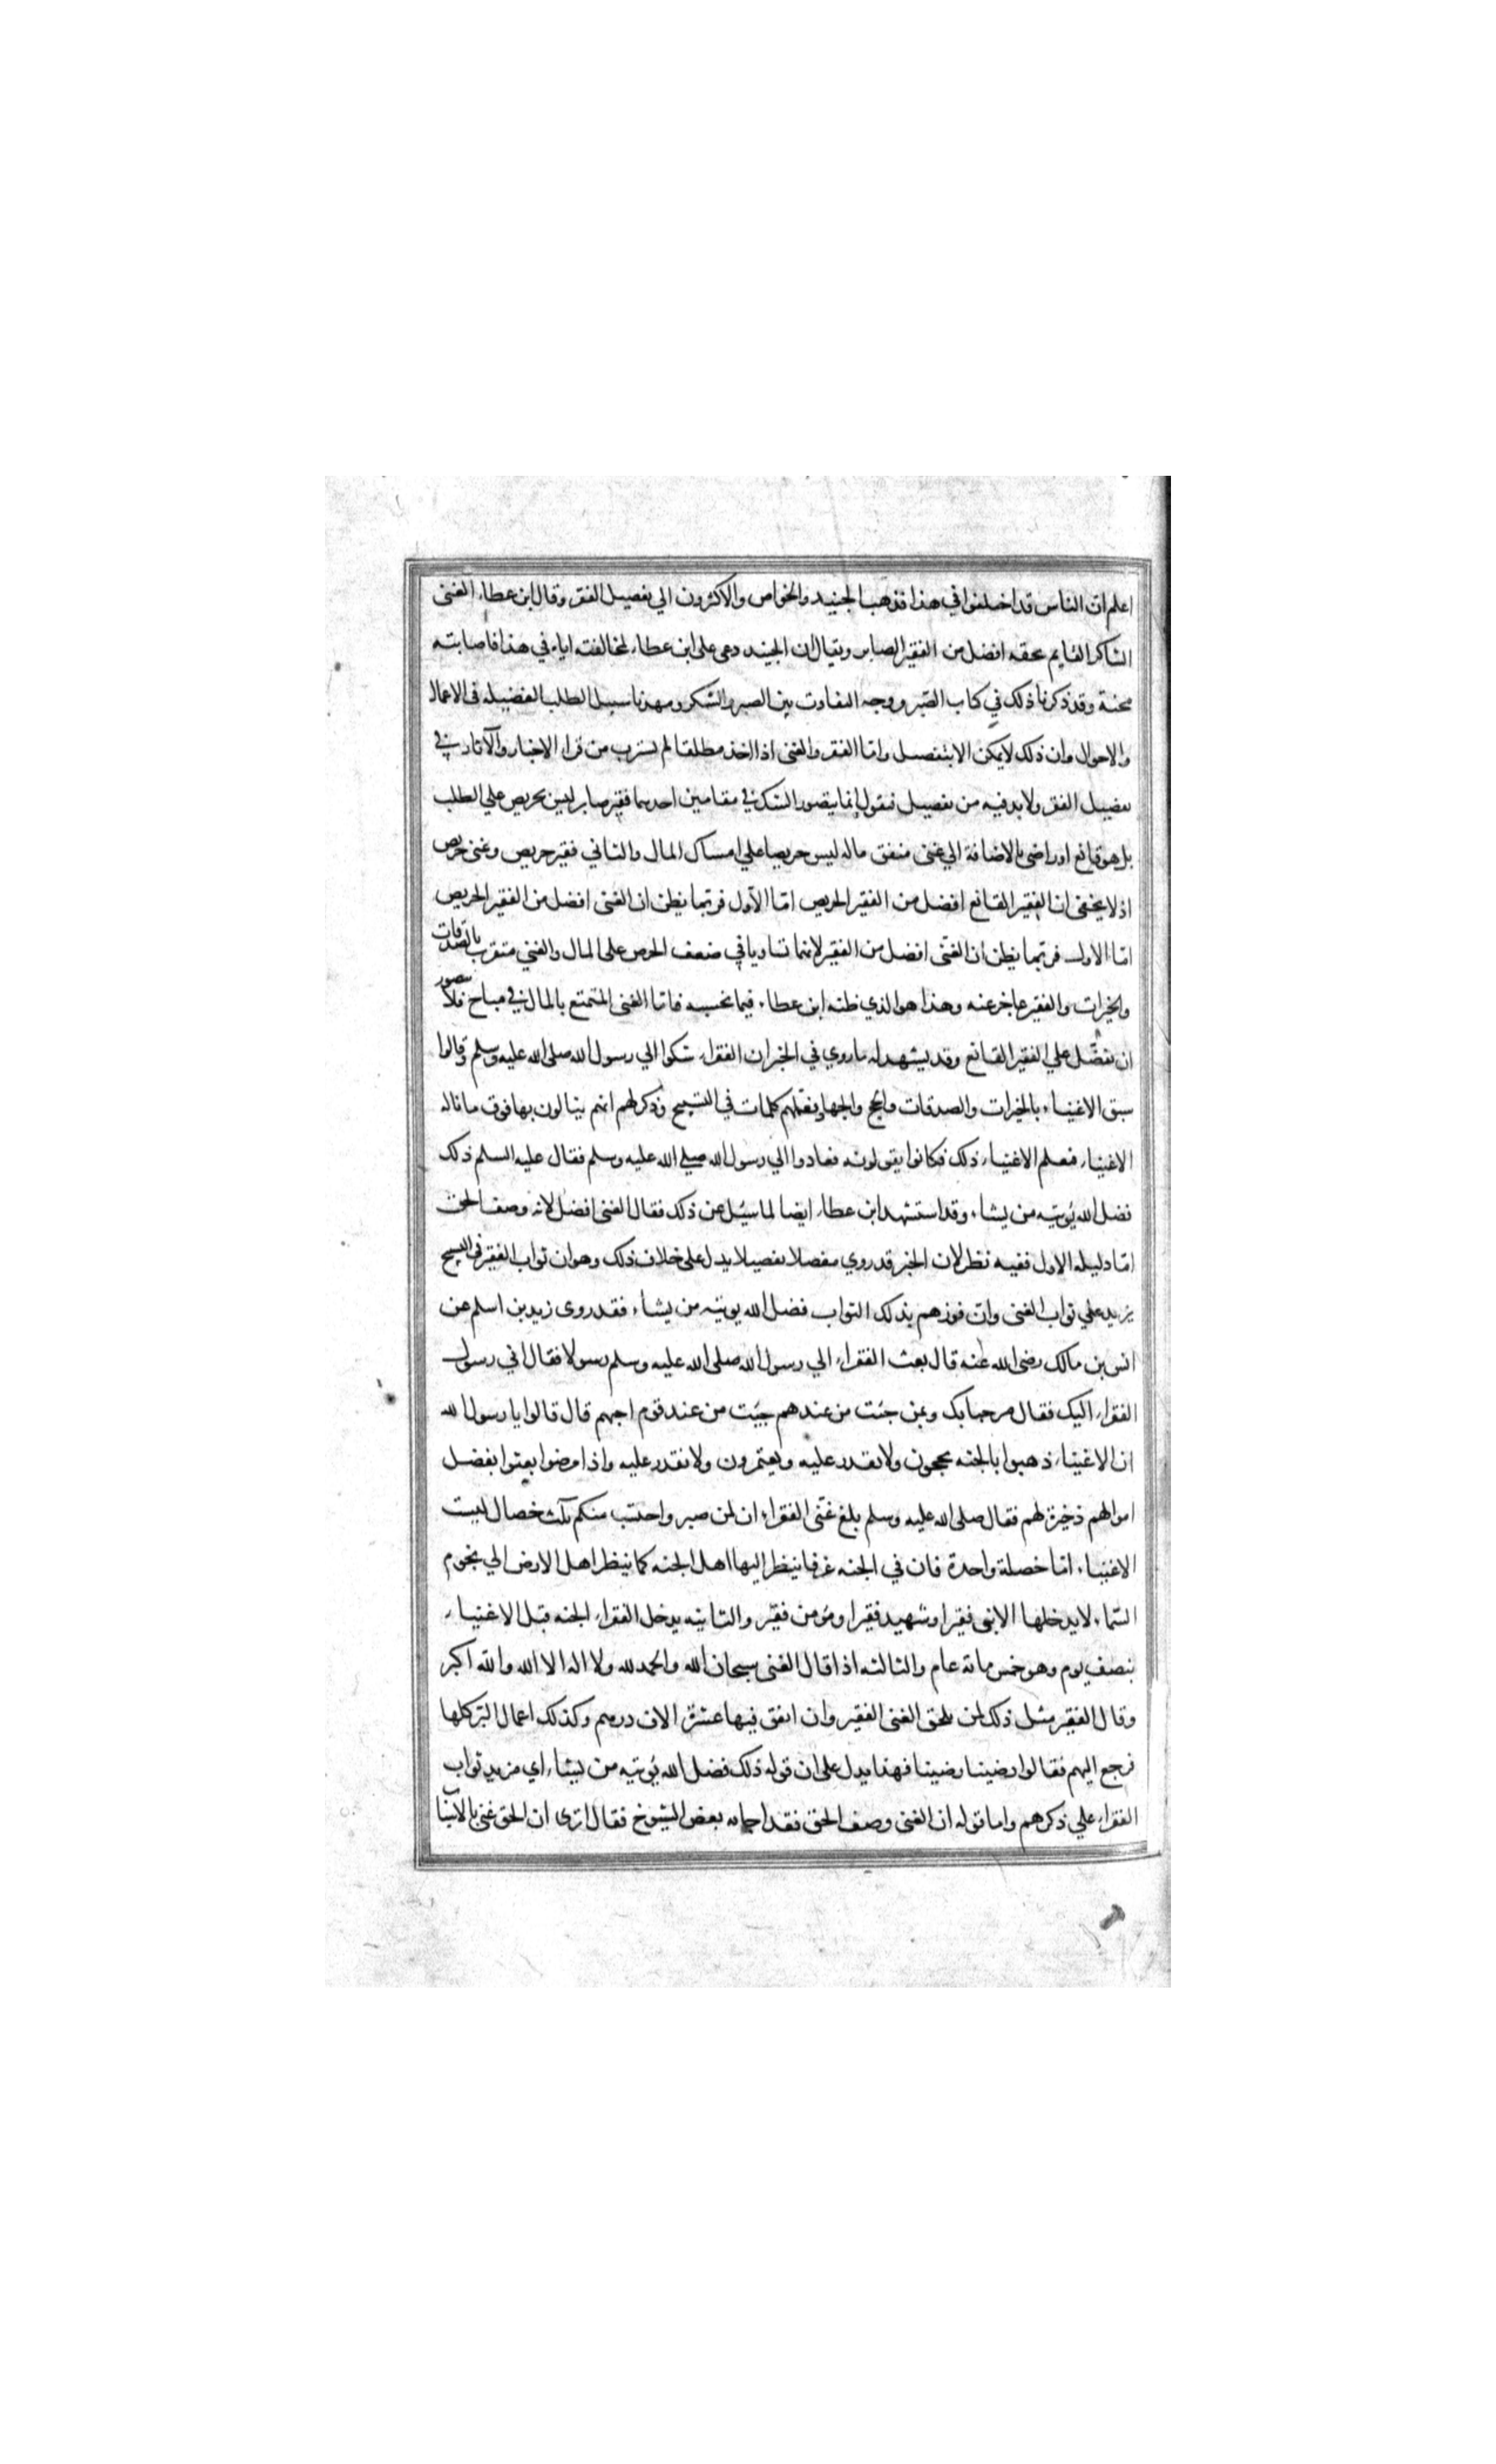 اعلم ان الناس قد اختلفوا في هذا فذهب الجنيد والخواص والاكثرون الي تفضيل الفقر وقال ابن عطاء الغنى
الشاكر القايم بحقه افضل من الفقير الصابر ويقال ان الجنيد دعى على ابن عطاء لمخالفته اياه في هذا فاصابته
محنة وقد ذكرنا ذلك في كتاب الصبر ووجه التفاوت بين الصبر والشكر ومهدنا سبيل الطلب الفضيله في الاعمال
والاحوال وان ذلك لا يمكن الا بتفصيل واما الفقر والغنى اذا اخذ مطلقا لم يسترب من قرا الاخبار والآثار في
تفضيل الفقر ولا بد فيه من تفصيل فنقول انما يتصور الشك في مقامين احدهما فقير صابر ليس بحريص علي الطلب
بل هو قانع او راضى بالاضافة الي غنى منفق ماله ليس حريصا علي امساك المال والثاني فقير حريص وغنى حريص
اذ لا يخفى ان الفقير القانع افضل من الفقير الحريص اما الاول فربما يظن ان الغنى افضل من الفقير الحريص
اما الاول فربما يظن ان الغنى افضل من الفقير لانهما تساويا في ضعف الحرص على المال والغني متقرب بالصدقات
والخيرات والفقير عاجز عنه وهذا هو الذي ظنه ابن عطاء فيما نحسبه فاما الغنى المتمتع بالمال في مباح فلا يتصور
ان يفضل علي الفقير القانع وقد يشهد له ما روي في الخبر ان الفقراء شكوا الي رسول الله صلى الله عليه وسلم وقالوا
سبق الاغنياء بالخيرات والصدقات والحج والجهاد فعلمهم كلمات في التسبيح وذكر لهم انهم ينالون بها فوق ما ناله
الاغنياء فعلم الاغنياء ذلك فكانوا يقولونه فعادوا الي رسول الله صلي الله عليه وسلم فقال عليه السلم ذلك
فضل الله يؤتيه من يشاء وقد استشهد ابن عطاء ايضا لما سئل عن ذلك فقال الغنى افضل لانه وصف الحق
اما دليله الاول ففيه نظر لان الخبر قد روي مفصلا تفصيلا يدل على خلاف ذلك وهو ان ثواب الفقير في التسبيح
يزيد علي ثواب الغنى وان فوزهم بذلك الثواب فضل الله يوتيه من يشاء فقد روى زيد بن اسلم عن
انس بن مالك رضى الله عنه قال بعث الفقراء الي رسول الله صلى الله عليه وسلم رسولا فقال اني رسول
الفقراء اليك فقال مرحبا بك وبمن جئت من عندهم جيئت من عند قوم احبهم قال قالوا يا رسول الله
ان الاغنياء ذهبوا بالجنه يحجون ولا نقدر عليه ويعتمرون ولا نقدر عليه واذا مرضوا بعثوا بفضل
اموالهم ذخيرة لهم فقال صلى الله عليه وسلم بلغ عنى الفقراء ان لمن صبر واحتسب منكم ثلث خصال ليست
الاغنياء اما خصلة واحدة فان في الجنه غرفا ينظر اليها اهل الجنه كما ينظر اهل الارض الي نجوم
السماء لا يدخلها الا نبى فقير او شهيد فقير او مؤمن فقير والثانيه يدخل الفقراء الجنه قبل الاغنياء
بنصف يوم وهو خمس مائة عام والثالثه اذا قال الغنى سبحان الله والحمد لله ولا اله الا الله والله اكبر
وقال الفقير مثل ذلك لمن يلحق الغنى الفقير وان انفق فيها عشرة الاف درهم وكذلك اعمال البر كلها
فرجع اليهم فقالوا رضينا رضينا فهذا يدل على ان قوله ذلك فضل الله يؤتيه من يشاء اي مزيد ثواب
الفقراء علي ذكرهم واما قوله ان الغنى وصف الحق فقد اجابه بعض الشيوخ فقال اترى ان الحق غنى بالاسباب